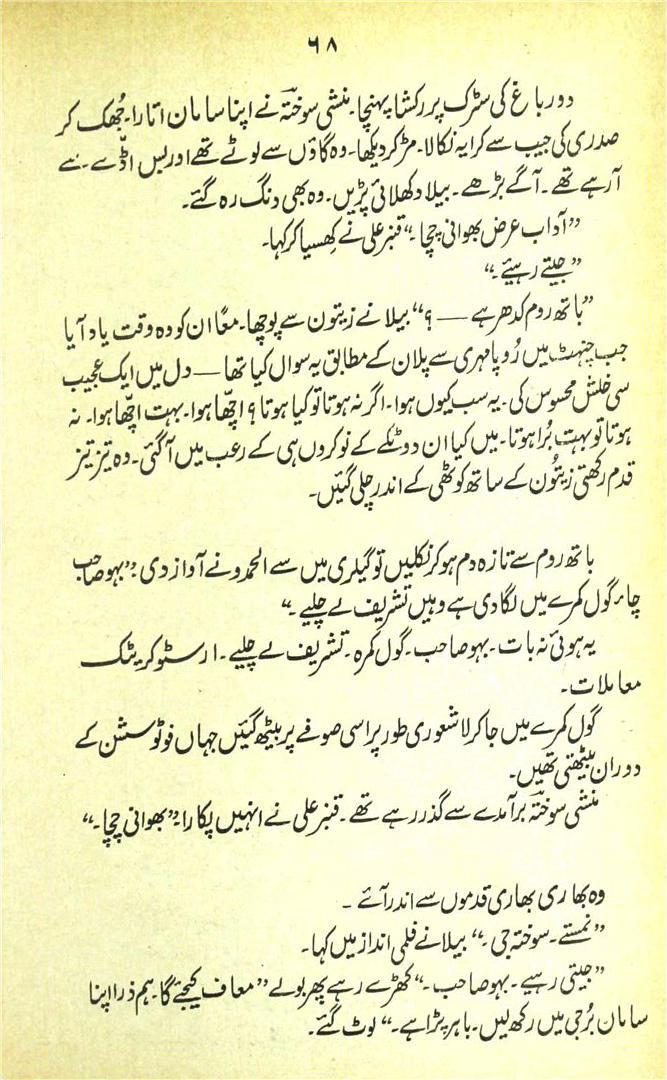 ٦٨
دور باغ کی سڑک پر رکشا پہنچا۔ منشی سوختہؔ نے اپنا سامان اتارا۔ جُھک کر
صدری کی جیب سے کرایہ نکالا۔ مڑ کر دیکھا۔ وہ گاؤں سے لوٹے تھے اور بس اڈّے سے
آرہے تھے۔ آگے بڑھے۔ بیلا دکھلائی پڑیں۔ وہ بھی دنگ رہ گئے۔
”آداب عرض بھوانی چچا۔“ قنبر علی نے کھِسیا کر کہا۔
”جیتے رہیئے۔“
”باتھ روم کدھر ہے — ؟“ بیلا نے زیتون سے پوچھا۔ معًا ان کو وہ وقت یاد آیا
جب چنہٹ میں رُوپا مہری سے پلان کے مطابق یہ سوال کیا تھا — دل میں ایک عجیب
سی خلش محسوس کی۔ یہ سب کیوں ہوا۔ اگر نہ ہوتا تو کیا ہوتا؟ اچّھا ہوا۔ بہت اچّھا ہوا۔ نہ
ہوتا تو بہت بُرا ہوتا۔ میں کیا ان دو ٹکے کے نوکروں ہی کے رعب میں آگئی۔ وہ تیز تیز
قدم رکھتی زیتُون کے ساتھ کوٹھی کے اندر چلی گئیں۔
باتھ روم سے تازہ دم ہو کر نکلیں تو گیلری میں سے الحمدو نے آواز دی: ”بہو صاحب
چائر گول کمرے میں لگا دی ہے وہیں تشریف لے چلیے۔“
یہ ہوئی نہ بات۔ بہو صاحب۔ گول کمرہ۔ تشریف لے چلیے۔ ارسٹو کریٹک
معاملات۔
گول کمرے میں جا کر لاشعوری طور پر اسی صوفے پر بیٹھ گئیں جہاں فوٹو سشن کے
دوران بیٹھتی تھیں۔
منشی سوختہؔ برآمدے سے گذر رہے تھے۔ قنبر علی نے انہیں پکارا: ”بھوانی چچا۔“
وہ بھاری بھاری قدموں سے اندر آئے۔
”نمستے۔ سوختہ جی۔“ بیلا نے فلمی انداز میں کہا۔
”جیتی رہیے۔ بہو صاحب۔“ کھڑے رہے پھر بولے ”معاف کیجئے گا۔ ہم ذرا اپنا
سامان بُرجی میں رکھ لیں۔ باہر پڑا ہے۔“ لوٹ گئے۔